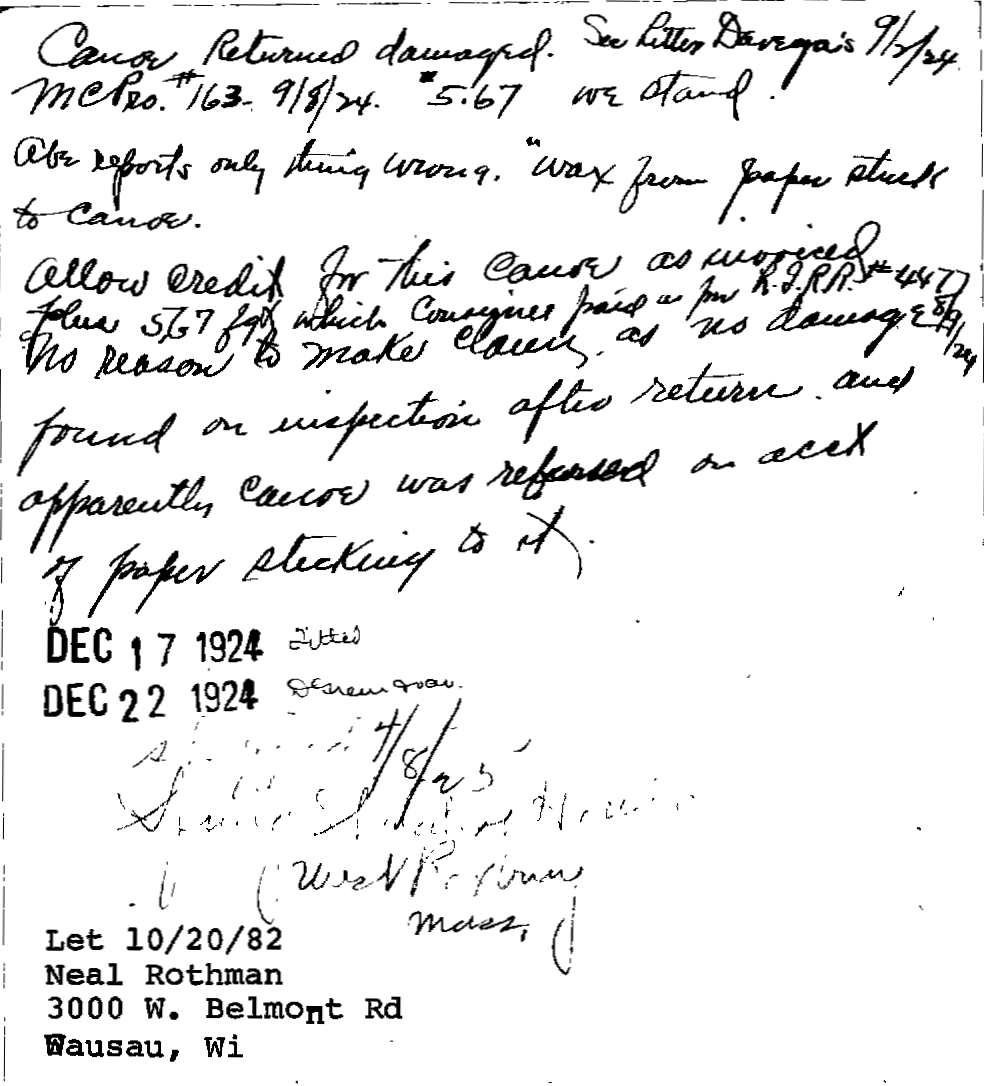 Canoe Returned damaged. See Letter Davega's 9/2/24.
MCPRo. #163- 9/8/24. $5.67 we stand.
Abe reports only thing wrong. "wax from paper stuck
to canoe.
Allow credit for this canoe as invoiced
plus 5.67 fgt which consignee paid as per R.I.P.R. #4477
8/9/24
No reason to make claim, as no damage
found on inspection after return and
apparently canoe was refused on acct
of paper sticking to it.
DEC 17 1924
DEC 22 1924
4/8/25
West Roxbury
Mass,
Let 10/20/82
Neal Rothman
3000 W. Belmont Rd
Wausau, Wi